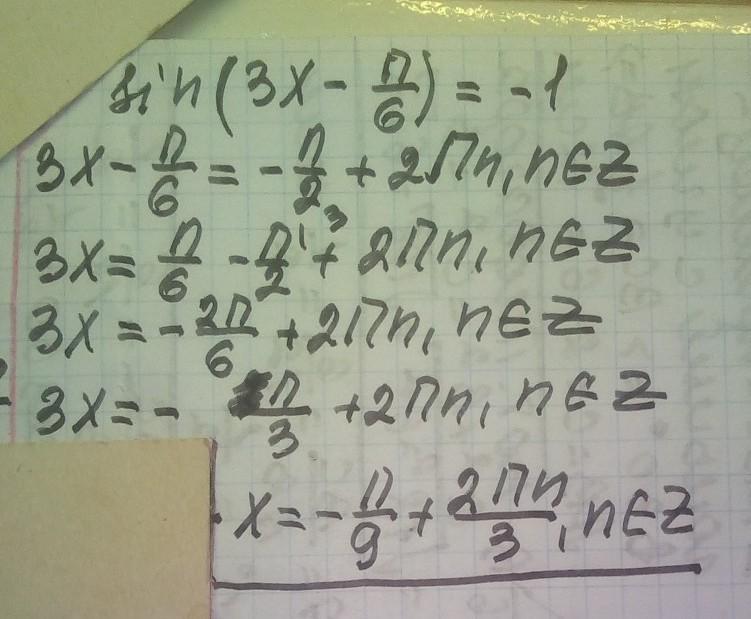 sin(3x - π/6) = -1
3x - π/6 = -π/2 + 2πn, n∈Z
3x = π/6 - π/2 ³⁾ + 2πn, n∈Z
3x = -2π/6 + 2πn, n∈Z
3x = - π/3 + 2πn, n∈Z
x = -π/9 + 2πn/3, n∈Z